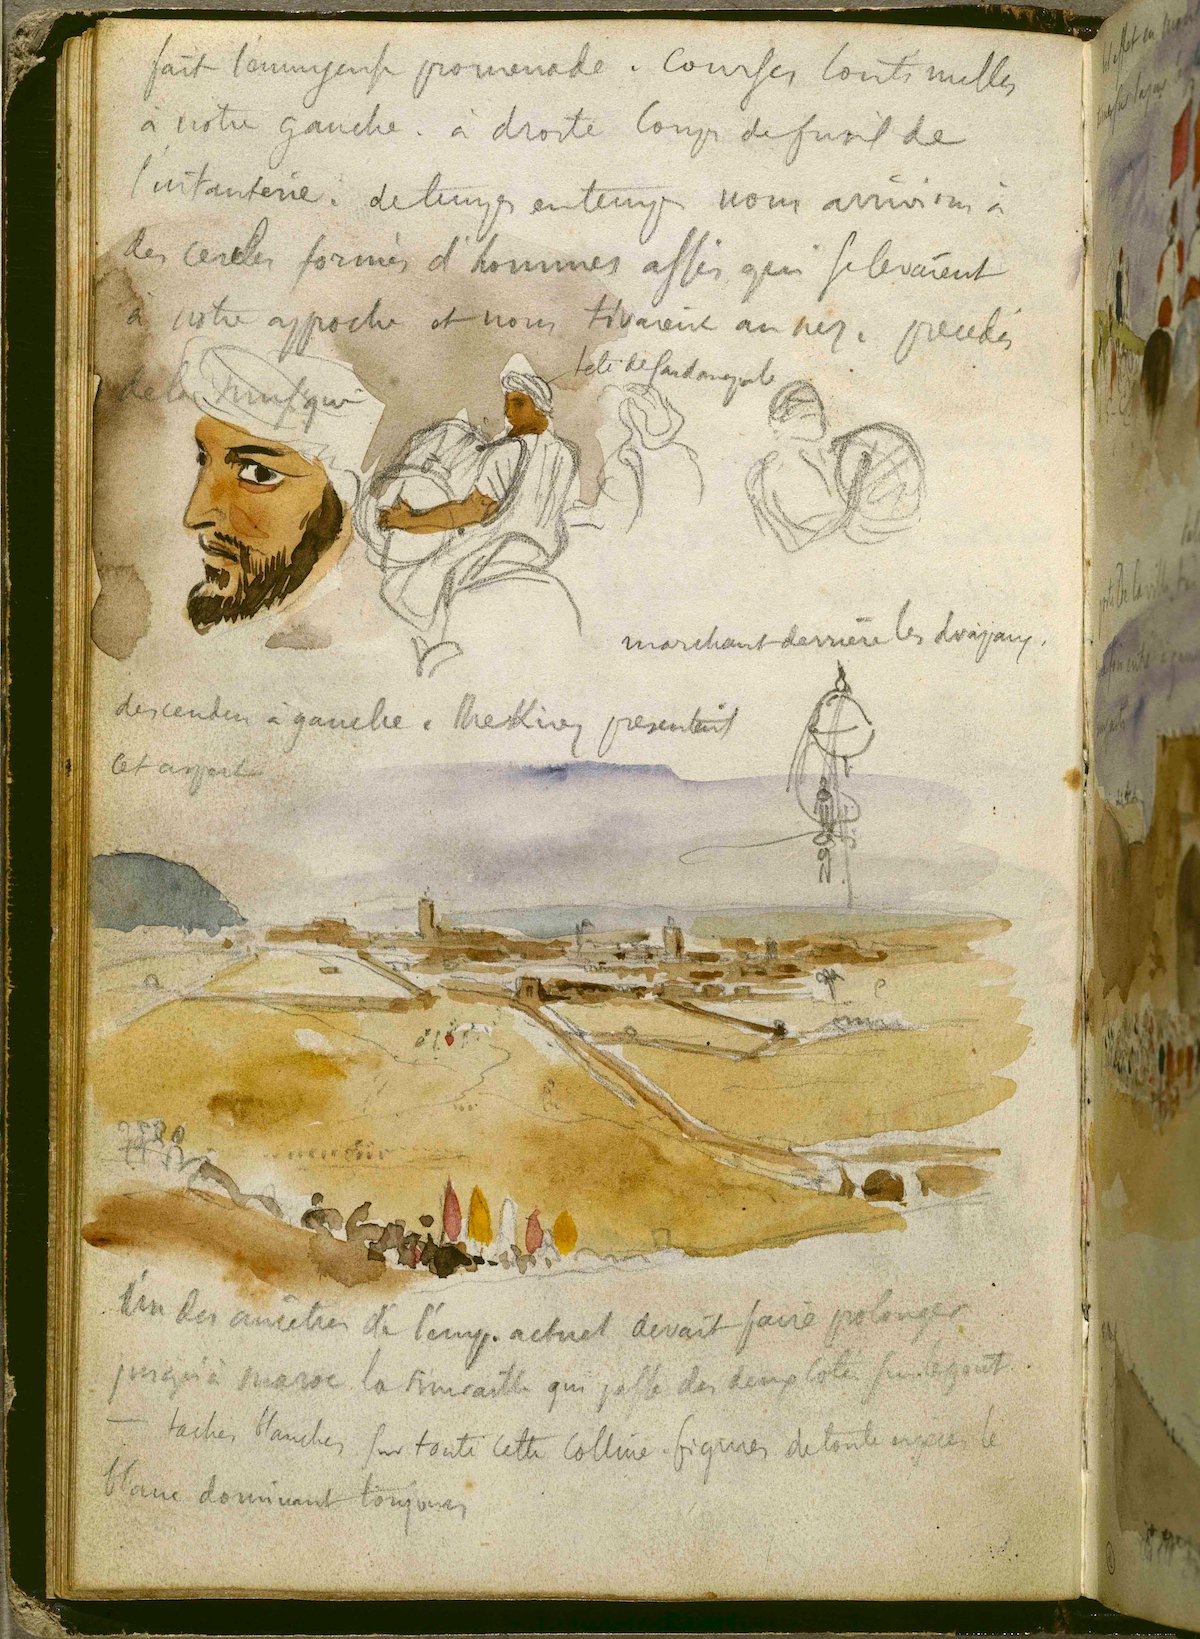 fait l'immense promenade. Courses continuelles
à notre gauche. à droite Coups de fusil de
l'infanterie. de temps en temps nous arrivions à
des cercles formés d'hommes assis qui se levaient
à notre approche et nous tiraient au nez. precedés
de la musique
tete de Sardanapale
marchant derrière les drapeaux.
descendu à gauche. Mekinez présentait
cet aspect
Un des ancêtres de l'emp. actuel devait faire prolonger
jusqu'à maroc la muraille qui passe des deux cotés sur le pont
— taches blanches sur toute cette colline. figures de toute espèce le
blanc dominant toujours